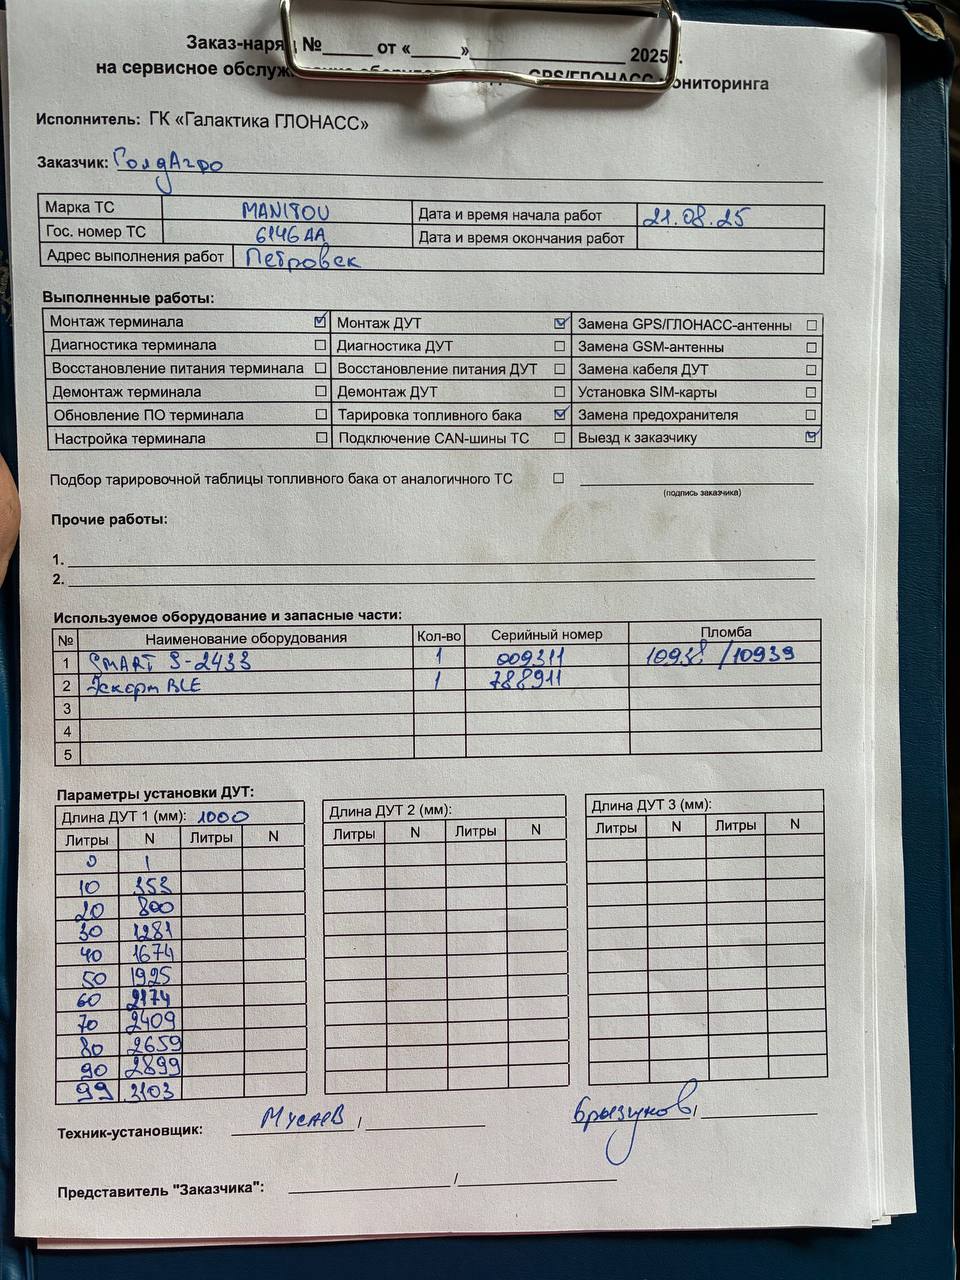 Заказ-наряд №_____ от «_____» _______________ 2025 г.
на сервисное обслуживание оборудования GPS/ГЛОНАСС мониторинга
Исполнитель: ГК «Галактика ГЛОНАСС»
Заказчик: ГолдАгро
Марка ТС MANITOU Дата и время начала работ 21.08.25
Гос. номер ТС 6146 АА Дата и время окончания работ
Адрес выполнения работ Петровск
Выполненные работы:
Монтаж терминала ☑ Монтаж ДУТ ☑ Замена GPS/ГЛОНАСС-антенны ☐
Диагностика терминала ☐ Диагностика ДУТ ☐ Замена GSM-антенны ☐
Восстановление питания терминала ☐ Восстановление питания ДУТ ☐ Замена кабеля ДУТ ☐
Демонтаж терминала ☐ Демонтаж ДУТ ☐ Установка SIM-карты ☐
Обновление ПО терминала ☐ Тарировка топливного бака ☑ Замена предохранителя ☐
Настройка терминала ☐ Подключение CAN-шины ТС ☐ Выезд к заказчику ☑
Подбор тарировочной таблицы топливного бака от аналогичного ТС ☐
(подпись заказчика)
Прочие работы:
1.
2.
Используемое оборудование и запасные части:
№ Наименование оборудования Кол-во Серийный номер Пломба
1 SMART S-2433 1 009311 10938 /10939
2 Эскорт BLE 1 788911
3
4
5
Параметры установки ДУТ:
Длина ДУТ 1 (мм): 1000 Длина ДУТ 2 (мм): Длина ДУТ 3 (мм):
Литры N Литры N Литры N Литры N Литры N Литры N
0 1
10 353
20 800
30 1281
40 1674
50 1925
60 2174
70 2409
80 2659
90 2899
99 3103
Техник-установщик: Мусаев / Брызгунов /
Представитель "Заказчика": /